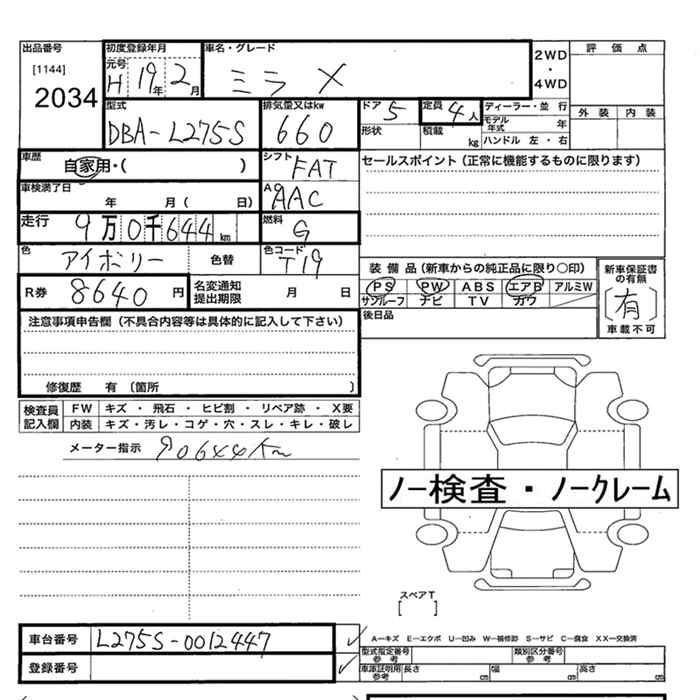 出品番号
[1144]
2034
初度登録年月
元号 H 19年 2月
車名・グレード
ミラ X
2WD
・
4WD
評価点
外装 内装
型式
DBA-L275S
排気量又はkw
660
ドア 5
定員 4人
形状
積載 kg
ディーラー・並行
モデル年式 年
ハンドル 左・右
車歴
自家用・( )
シフト FAT
セールスポイント (正常に機能するものに限ります)
車検満了日
年 月 ( 日)
AAC
走行 9万0千644km
燃料 G
色 アイボリー 色替
色コード T19
R券 8640円
名変通知
提出期限 月 日
装備品 (新車からの純正品に限り○印)
PS PW ABS エアB アルミW
サンルーフ ナビ TV カワ
新車保証書
の有無
[有]
車載不可
後日品
注意事項申告欄 (不具合内容等は具体的に記入して下さい)
修復歴 有 (箇所 )
検査員
記入欄
FW キズ ・ 飛石 ・ ヒビ割 ・ リペア跡 ・ X要
内装 キズ・汚レ・コゲ・穴・スレ・キレ・破レ
メーター指示 90644Km
ノー検査・ノークレーム
スペアT
[ ]
車台番号 L275S-0012447
登録番号
A―キズ E―エクボ U―凹み W―補修跡 S―サビ C―腐食 XX―交換済
型式指定番号
参考
類別区分番号
参考
車庫証明用
参考
長さ cm 幅 cm 高さ cm